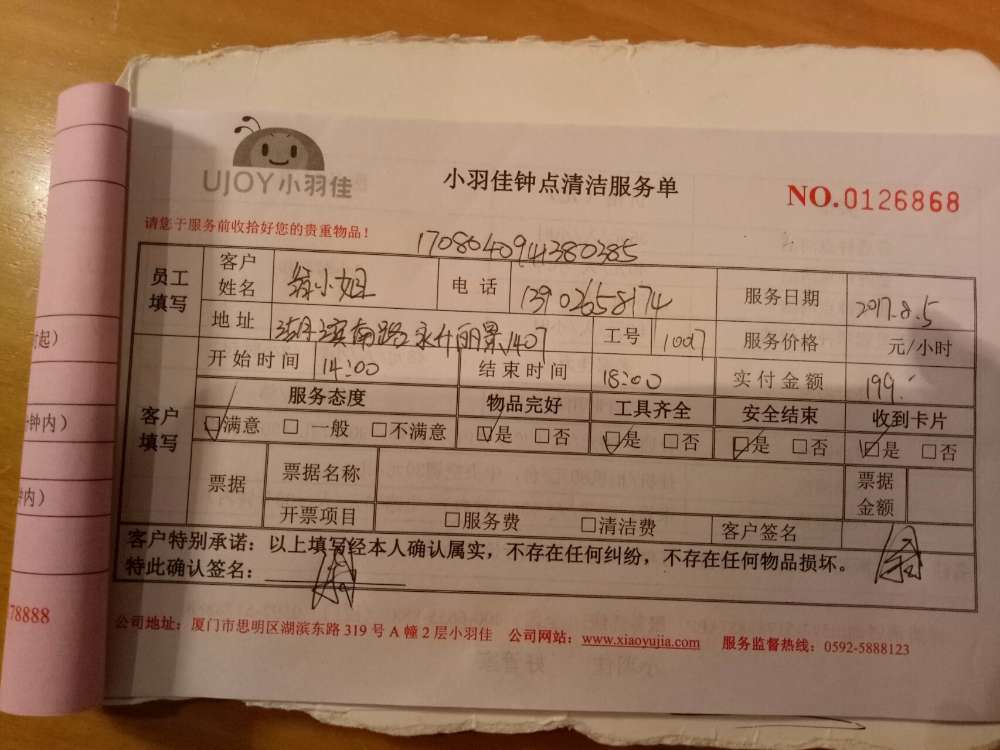 UJOY小羽佳
小羽佳钟点清洁服务单
NO.0126868
请您于服务前收拾好您的贵重物品！
员工填写 客户姓名 小姐 电话 13902658174 服务日期 2017.8.5
地址 湖滨南路永升丽景1407 工号 1007 服务价格 元/小时
开始时间 14:00 结束时间 18:00 实付金额 199
客户填写 服务态度 物品完好 工具齐全 安全结束 收到卡片
☑满意 □一般 □不满意 ☑是 □否 ☑是 □否 ☑是 □否 ☑是 □否
票据 票据名称 票据金额
开票项目 □服务费 □清洁费 客户签名
客户特别承诺：以上填写经本人确认属实，不存在任何纠纷，不存在任何物品损坏。
特此确认签名：
公司地址：厦门市思明区湖滨东路319号A幢2层小羽佳 公司网站：www.xiaoyujia.com 服务监督热线：0592-5888123
时起）
钟内）
78888